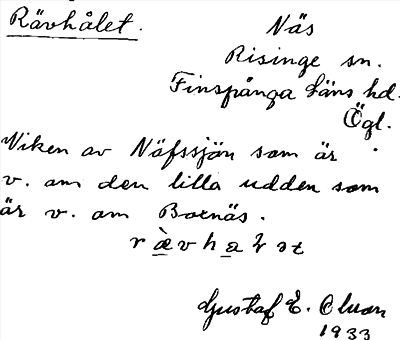 Rävhålet.
Näs
Risinge sn.
Finspånga Läns hd.
Ögl.
Viken av Näfssjön som är
v. om den lilla udden som
är v. om Boxnäs.
Gustaf E.
1933